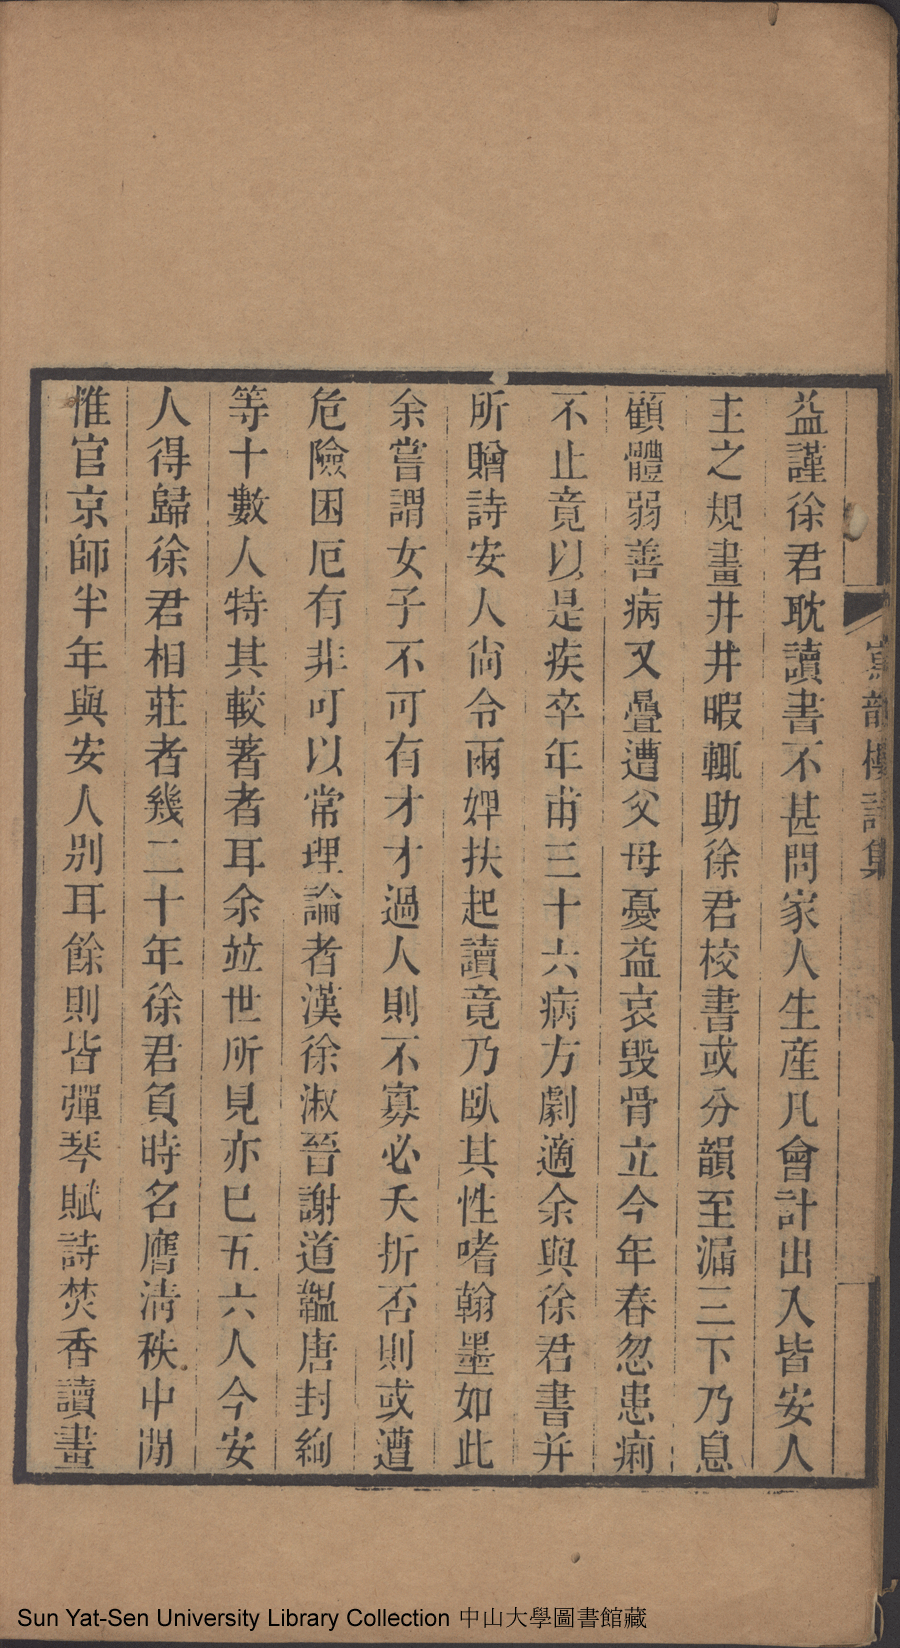 益謹徐君耽讀書不甚問家人生產凡會計出入皆安人
主之規畫井井暇輒助徐君校書或分韻至漏三下乃息
顧體弱善病又疊遭父母憂益哀毀骨立今年春忽患痢
不止竟以是疾卒年甫三十六病方劇適余與徐君書并
所贈詩安人尙令兩婢扶起讀竟乃臥其性嗜翰墨如此
余嘗謂女子不可有才才過人則不寡必夭折否則或遭
危險困厄有非可以常理論者漢徐淑晉謝道韞唐封絢
等十數人特其較著者耳余竝世所見亦巳五六人今安
人得歸徐君相莊者幾二十年徐君負時名膺清秩中閒
惟官京師半年與安人別耳餘則皆彈琴賦詩焚香讀畫
韻樓詩集
Sun Yat-Sen University Library Collection 中山大學圖書館藏